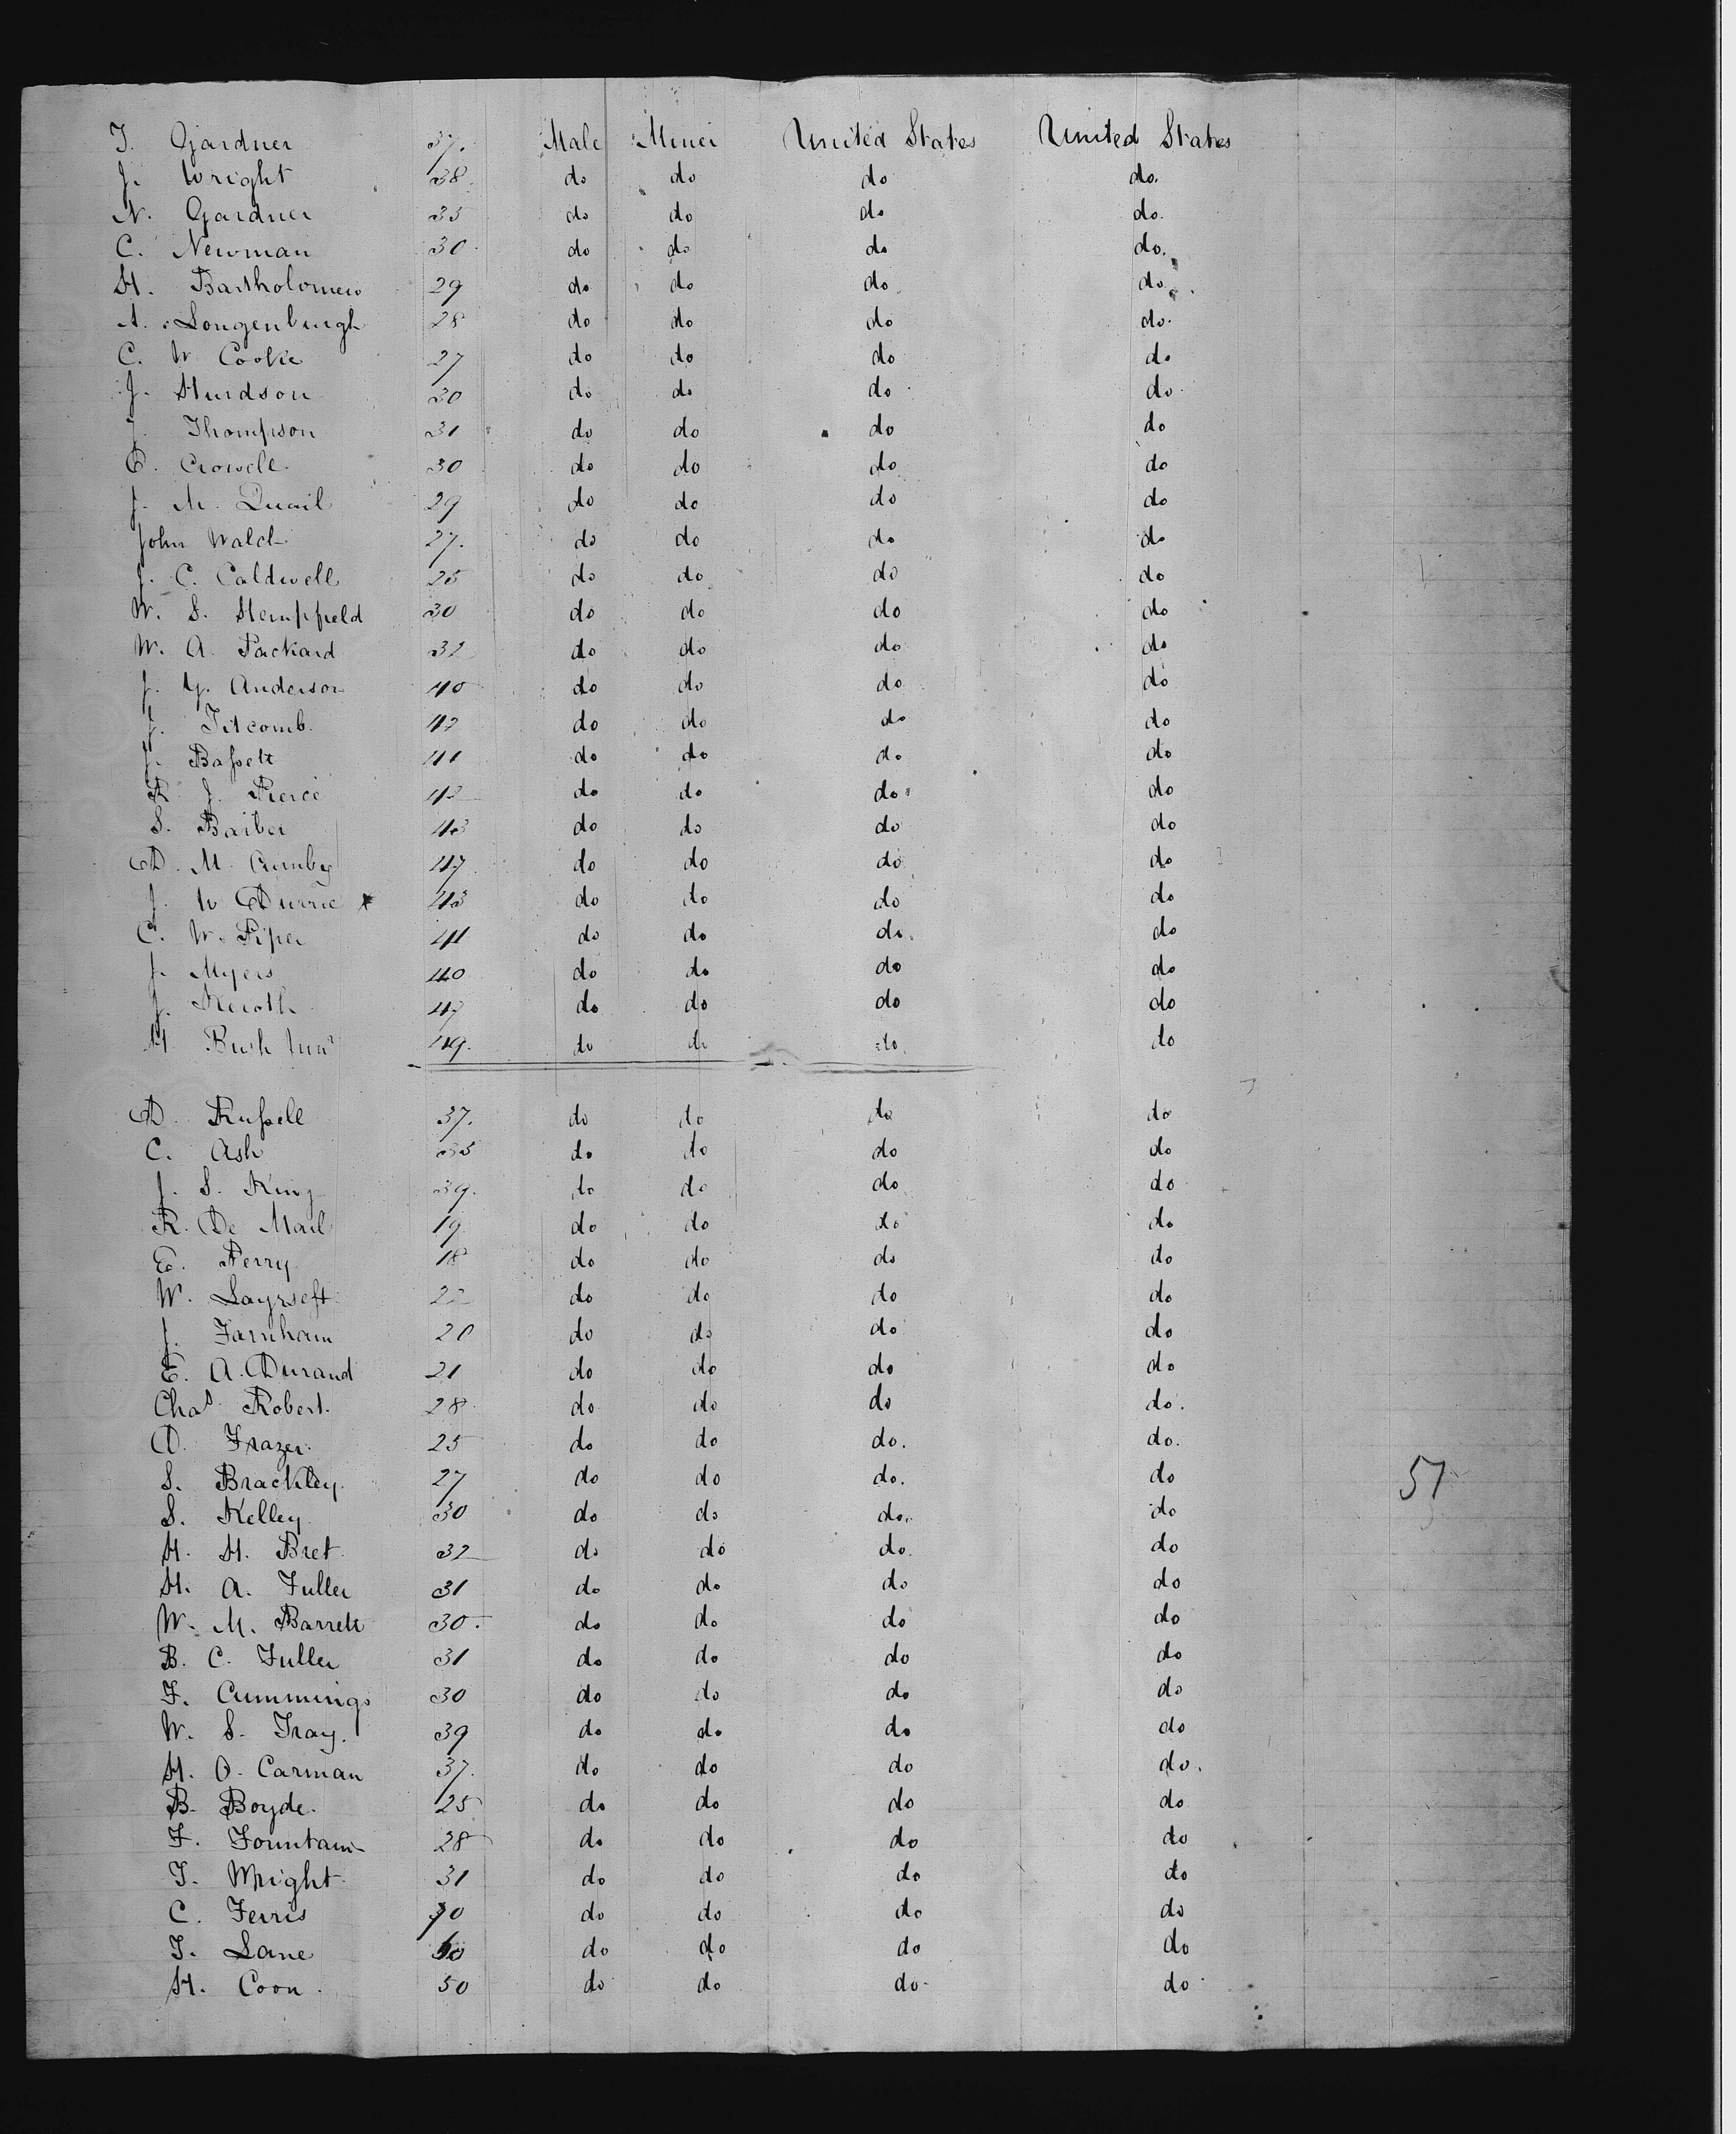 T. Gardner 37. Male Miner United States United States
J. Wright 38. do do do do.
N. Gardner 35 do do do do.
C. Newman 30. do do do do.
H. Bartholomew 29 do do do do.
A. Longenburgh 28 do do do do.
C. W Cooke 27 do do do do
J. Hurdson 30 do do do do
J. Thompson 31 do do do do
O. Crowell 30 do do do do
J. M. Quail 29 do do do do
John Walch 27. do do do do
J. C. Caldwell 25 do do do do
W. S. Hempfield 30 do do do do
W. A. Packard 32 do do do do
J. Y. Anderson 40 do do do do
J. Titcomb. 42 do do do do
J. Bassett 41 do do do do
R J. Pierce 42 do do do do
S. Barber 43 do do do do
D. M. Crumby 47 do do do do
J. W Durrie 43 do do do do
C. W. Piper 41 do do do. do
J. Myers 40 do do do do
J. Keroth 47 do do do do
H Bush Junr 49. do do do. do
D. Russell 37. do do do do
C. Ash 35 do do do do
J. S. King 39. do do do do
R. De Mail 19 do do do do
E. Perry 18 do do do do
W. Layrseft 22 do do do do
J. Farnham 20 do do do do
E. A. Durand 21 do do do do
Chas Robert. 28 do do do do.
D. Frazer. 25 do do do. do.
S. Brackley. 27 do do do. do
S. Kelley. 30 do do do. do
H. H. Bret. 32 do do do. do
H. A. Fuller 31 do do do do
W. M. Barrett 30. do do do do
B. C. Fuller 31 do do do do
F. Cummings 30 do do do do
W. S. Tray. 39 do do do do
H. O. Carman 37. do do do do.
B. Boyde. 25 do do do do
F. Fountain 28 do do do do
T. Wright 31 do do do do
C. Ferris 30 do do do do
T. Lane do do do do
H. Coon. 50 do do do do
51